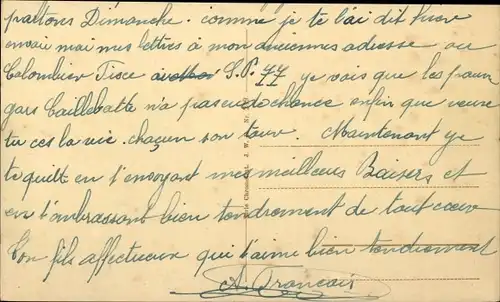 partons Dimanche. comme je te l'ai dit hier
envoie moi mes lettres à mon ancienne adresse au
Colombier S.P. 77 je vois que les pauv
gars Caillebatte n'a pas eu de chance enfin que veux
tu ces la vie. chaqun son tour. Maintenant je
te quitt en t'envoyant mes meilleurs Baisers et
en t'ambrassant bien tendrement de tout cœur
Ton fils affectueux qui t'aime bien tendrement
A. Francais